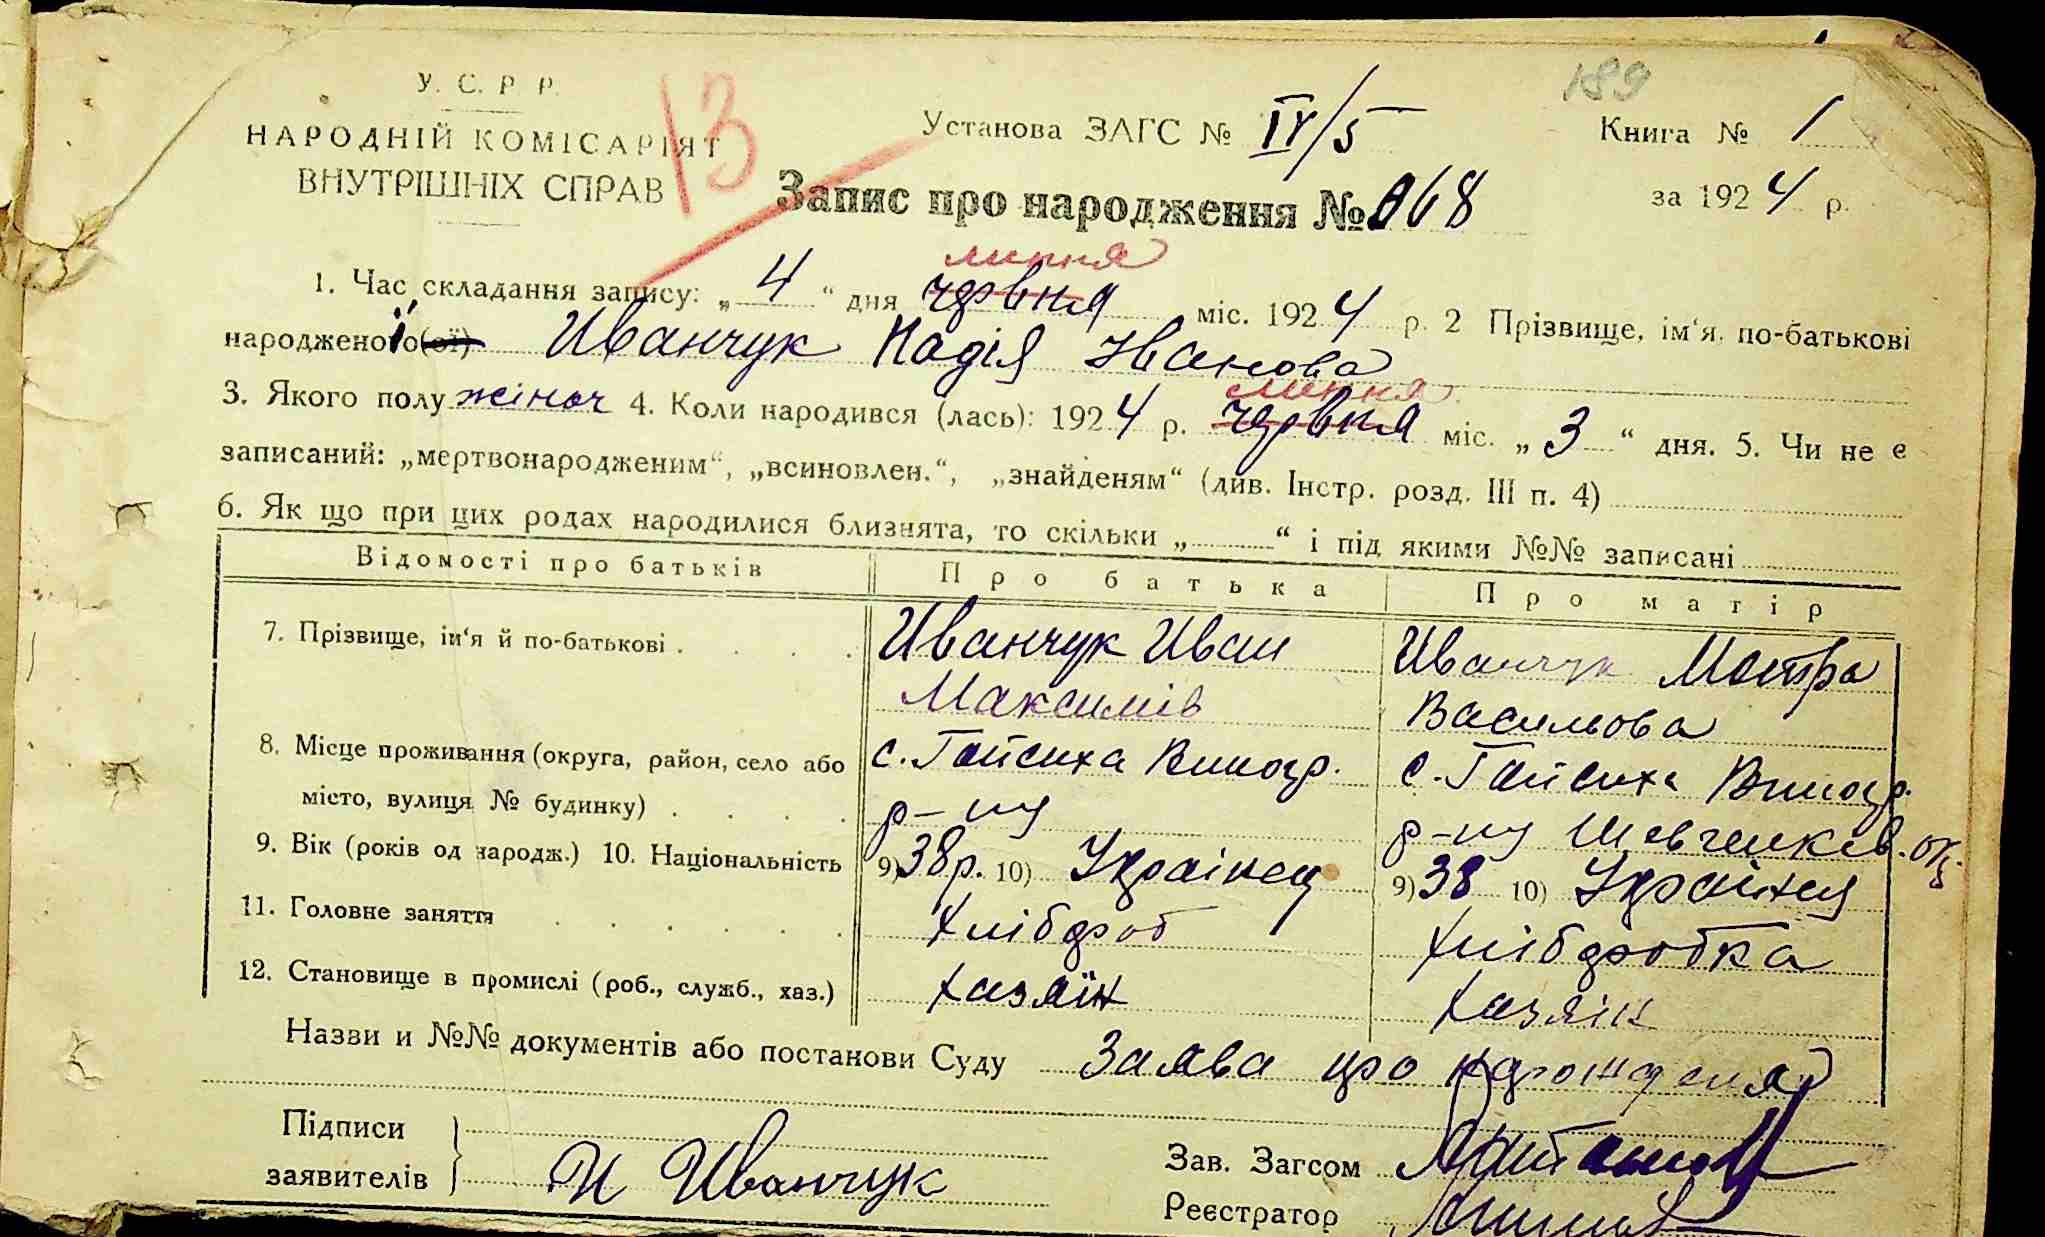 189
У. С. Р. Р.
НАРОДНІЙ КОМІСАРІЯТ
ВНУТРІШНІХ СПРАВ
13
Установа ЗАГС № IV/5
Книга № 1
за 1924 р.
Запис про народження № 068
липня
1. Час складання запису: „ 4 “ дня червня міс. 1924 р. 2 Прізвище, ім‘я, по-батькові
народженого(ої) Иванчук Надія Іванова
липня
3. Якого полу жіноч 4. Коли народився (лась): 1924 р. червня міс. „ 3 “ дня. 5. Чи не є
записаний: „мертвонародженим“, „всиновлен.“, „знайденям“ (див. Інстр. розд. III п. 4)
6. Як що при цих родах народилися близнята, то скільки „ “ і під якими №№ записані
Відомості про батьків Про батька Про матір
7. Прізвище, ім‘я й по-батькові Иванчук Иван Иванчук Мотря
Максимів Васильова
8. Місце проживання (округа, район, село або с. Гайсиха Виногр. с. Гайсиха Виногр.
місто, вулиця № будинку) р-ну р-ну Шевченків. окр.
9. Вік (років од народж.) 10. Національність 9) 38 р. 10) Українец 9) 38 10) Українец
11. Головне заняття Хлібороб Хліборобка
12. Становище в промислі (роб., служб., хаз.) Хазяїн Хазяін
Назви и №№ документів або постанови Суду Заява про
Підписи
заявителів И Иванчук
Зав. Загсом
Реєстратор